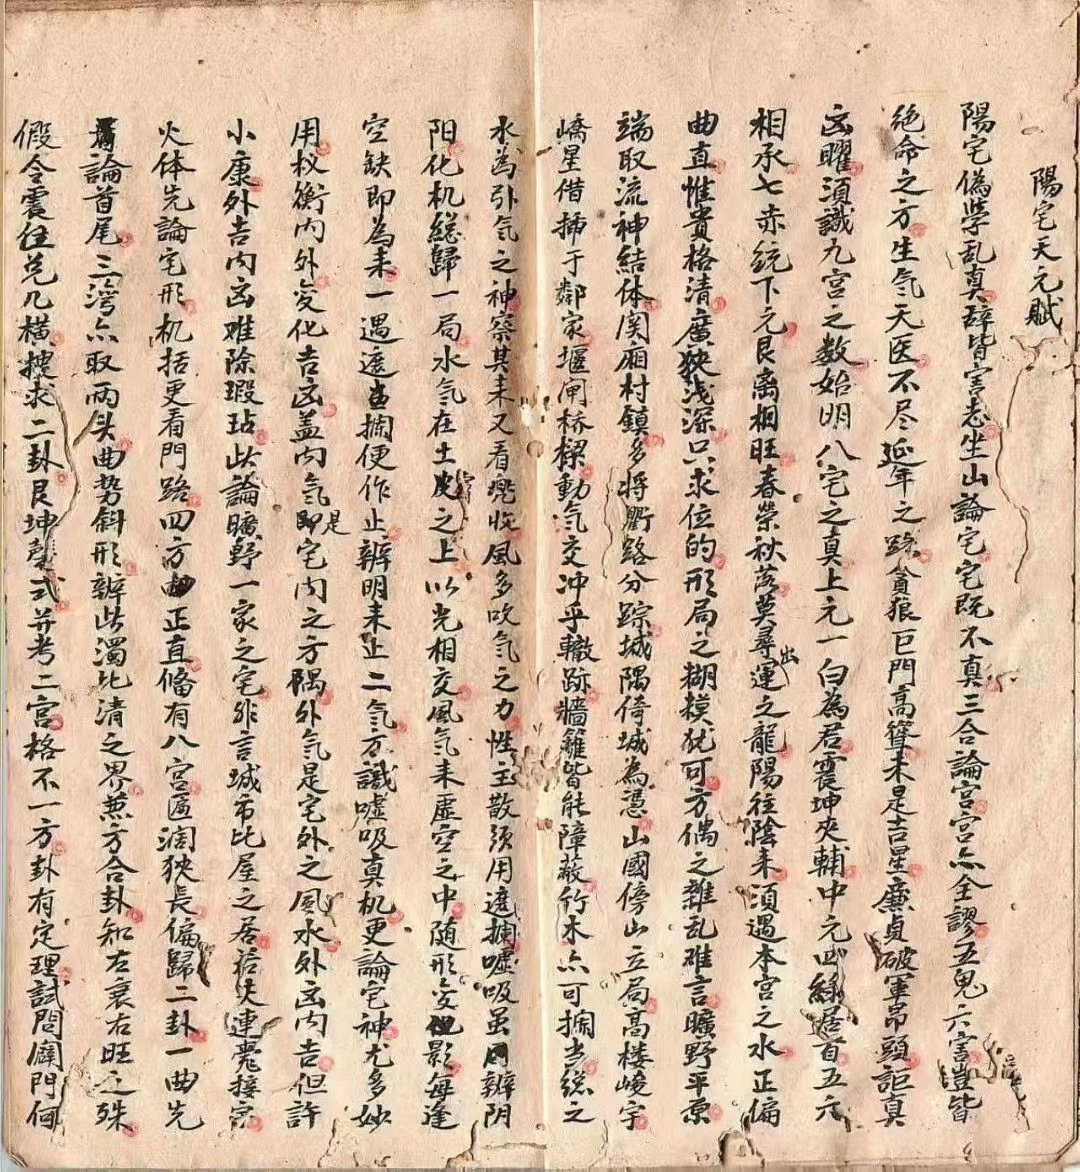 陽宅天元賦
陽宅偽学乱真辞皆害志坐山論宅宅既不真三合論宫宫亦全謬五鬼六害豈皆
绝命之方生气天医不尽延年之路貪狼巨門高聳未是吉星廉貞破軍昂頭詎真
凶曜須識九宫之数始明八宅之真上元一白為君震坤夾輔中元四緑居首五六
相承七赤统下元艮离相旺春荣秋落莫尋出運之龍陽往陰来須遇本宫之水正偏
曲直惟貴格清廣狹浅深只求位的形局之糊模犹可方偶之雜乱难言曠野平原
端取流神結体関厢村鎮多将衢路分踪城隅倚城為憑山國傍山立局高楼峻宇
嶠星借插于鄰家堰闸桥樑動气交冲乎轍跡牆籬皆能障蔽竹木亦可攔当総之
水為引气之神察其来又看兜收風多吹气之力性主散须用遮攔嘘吸虽辨阴
阳化机総歸一局水气在土皮之上以光相交風气来虚空之中随形变影每逢
空缺即為来一遇遮攔便作止辨明来止二气方識嘘吸真机更論宅神尤多妙
用权衡内外变化吉凶盖内气即是宅内之方隅外气是宅外之風水外凶内吉但許
小康外吉内凶难除瑕玷此論曠野一家之宅非言城市比屋之居若夫連甍接宗
火体先論宅形机括更看門路四方正直俻有八宫匾濶狹長偏歸二卦一曲先
論首尾三灣亦取两头曲势斜形辨此濁比清之界兼方合卦知左衰右旺之殊
假令震住兑几横搜求二卦艮坤式并考二宫格不一方卦有定理試問闗門何